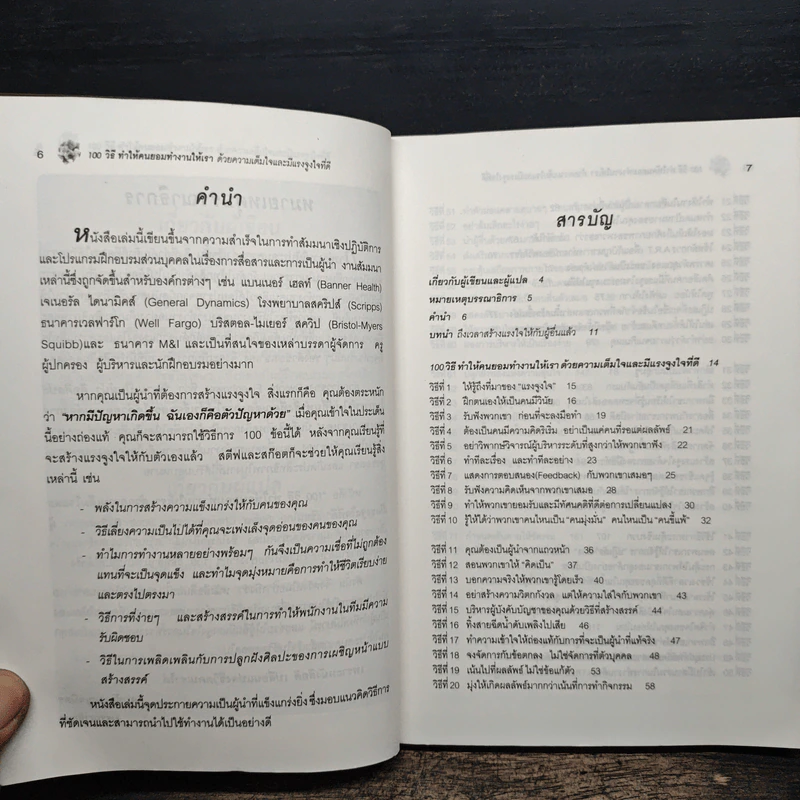 6 100 วิธี ทำให้คนยอมทำงานให้เรา ด้วยความเต็มใจและมีแรงจูงใจที่ดี
คำนำ
หนังสือเล่มนี้เขียนขึ้นจากความสำเร็จในการทำสัมมนาเชิงปฏิบัติการ
และโปรแกรมฝึกอบรมส่วนบุคคลในเรื่องการสื่อสารและการเป็นผู้นำ งานสัมมนา
เหล่านี้ซึ่งถูกจัดขึ้นสำหรับองค์กรต่างๆ เช่น แบนเนอร์ เฮลท์ (Banner Health)
เจเนอรัล ไดนามิคส์ (General Dynamics) โรงพยาบาลสคริปส์ (Scripps)
ธนาคารเวลฟาร์โก (Well Fargo) บริสตอล-ไมเยอร์ สควิป (Bristol-Myers
Squibb)และ ธนาคาร M&I และเป็นที่สนใจของเหล่าบรรดาผู้จัดการ ครู
ผู้ปกครอง ผู้บริหารและนักฝึกอบรมอย่างมาก
หากคุณเป็นผู้นำที่ต้องการสร้างแรงจูงใจ สิ่งแรกก็คือ คุณต้องตระหนัก
ว่า "หากมีปัญหาเกิดขึ้น ฉันเองก็คือตัวปัญหาด้วย" เมื่อคุณเข้าใจในประเด็น
นี้อย่างถ่องแท้ คุณก็จะสามารถใช้วิธีการ 100 ข้อนี้ได้ หลังจากคุณเรียนรู้ที่
จะสร้างแรงจูงใจให้กับตัวเองแล้ว สตีฟและสก็อตก็จะช่วยให้คุณเรียนรู้สิ่ง
เหล่านี้ เช่น
- พลังในการสร้างความแข็งแกร่งให้กับคนของคุณ
- วิธีเลี่ยงความเป็นไปได้ที่คุณจะเพ่งเล็งจุดอ่อนของคนของคุณ
- ทำไมการทำงานหลายอย่างพร้อมๆ กันจึงเป็นความเชื่อที่ไม่ถูกต้อง
แทนที่จะเป็นจุดแข็ง และทำไมจุดมุ่งหมายคือการทำให้ชีวิตเรียบง่าย
และตรงไปตรงมา
- วิธีการที่ง่ายๆ และสร้างสรรค์ในการทำให้พนักงานในทีมมีความ
รับผิดชอบ
- วิธีในการเพลิดเพลินกับการปลูกฝังศิลปะของการเผชิญหน้าแบบ
สร้างสรรค์
หนังสือเล่มนี้จุดประกายความเป็นผู้นำที่แข็งแกร่งยิ่ง ซึ่งมอบแนวคิดวิธีการ
ที่ชัดเจนและสามารถนำไปใช้ทำงานได้เป็นอย่างดี
7
สารบัญ
เกี่ยวกับผู้เขียนและผู้แปล 4
หมายเหตุบรรณาธิการ 5
คำนำ 6
บทนำ ถึงเวลาสร้างแรงใจให้กับผู้อื่นแล้ว 11
100 วิธี ทำให้คนยอมทำงานให้เรา ด้วยความเต็มใจและมีแรงจูงใจที่ดี 14
วิธีที่ 1 ให้รู้ถึงที่มาของ "แรงจูงใจ" 15
วิธีที่ 2 ฝึกตนเองให้เป็นคนมีวินัย 16
วิธีที่ 3 รับฟังพวกเขา ก่อนที่จะลงมือทำ 19
วิธีที่ 4 ต้องเป็นคนมีความคิดริเริ่ม อย่าเป็นแค่คนที่รอแต่ผลลัพธ์ 21
วิธีที่ 5 อย่าวิพากษ์วิจารณ์ผู้บริหารระดับที่สูงกว่าให้พวกเขาฟัง 22
วิธีที่ 6 ทำทีละเรื่อง และทำทีละอย่าง 23
วิธีที่ 7 แสดงการตอบสนอง(Feedback) กับพวกเขาเสมอๆ 25
วิธีที่ 8 รับฟังความคิดเห็นจากพวกเขาเสมอ 28
วิธีที่ 9 ทำให้พวกเขายอมรับและมีทัศนคติที่ดีต่อการเปลี่ยนแปลง 30
วิธีที่ 10 รู้ให้ได้ว่าพวกคนไหนเป็น "คนมุ่งมั่น" คนไหนเป็น "คนขี้แพ้" 32
วิธีที่ 11 คุณต้องเป็นผู้นำจากแถวหน้า 36
วิธีที่ 12 สอนพวกเขาให้ "คิดเป็น" 37
วิธีที่ 13 บอกความจริงให้พวกเขารู้โดยเร็ว 40
วิธีที่ 14 อย่าสร้างความวิตกกังวล แต่ให้ความใส่ใจกับพวกเขา 43
วิธีที่ 15 บริหารผู้บังคับบัญชาของคุณด้วยวิธีที่สร้างสรรค์ 44
วิธีที่ 16 ทิ้งสายฉีดน้ำดับเพลิงไปเสีย 46
วิธีที่ 17 ทำความเข้าใจให้ถ่องแท้กับการที่จะเป็นผู้นำที่แท้จริง 47
วิธีที่ 18 จงจัดการกับข้อตกลง ไม่ใช่จัดการที่ตัวบุคคล 48
วิธีที่ 19 เน้นไปที่ผลลัพธ์ ไม่ใช่ข้อแก้ตัว 53
วิธีที่ 20 มุ่งให้เกิดผลลัพธ์มากกว่าเน้นที่การทำกิจกรรม 58